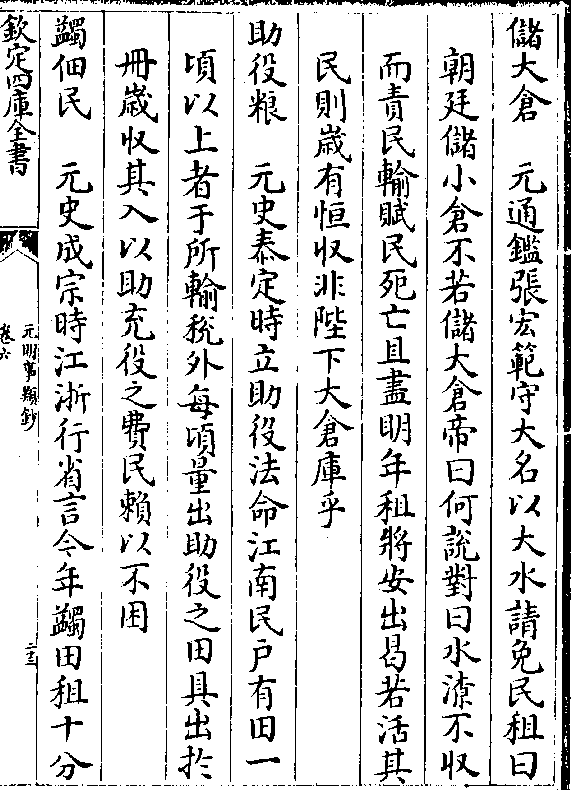 儲大倉　元通鑑張宏範守大名以大水請免民租曰
朝廷儲小倉不若儲大倉帝曰何說對曰水潦不收
而責民輸賦民死亡且盡明年租將安出曷若活其
民則歲有恒收非陛下大倉庫乎
助役粮　元史泰定時立助役法命江南民戶有田一
頃以上者于所輸稅外每頃量出助役之田具出於
冊歲收其入以助充役之費民賴以不困
蠲佃民　元史成宗時江浙行省言今年蠲田租十分
欽定四庫全書
元明事類鈔
卷六
二三